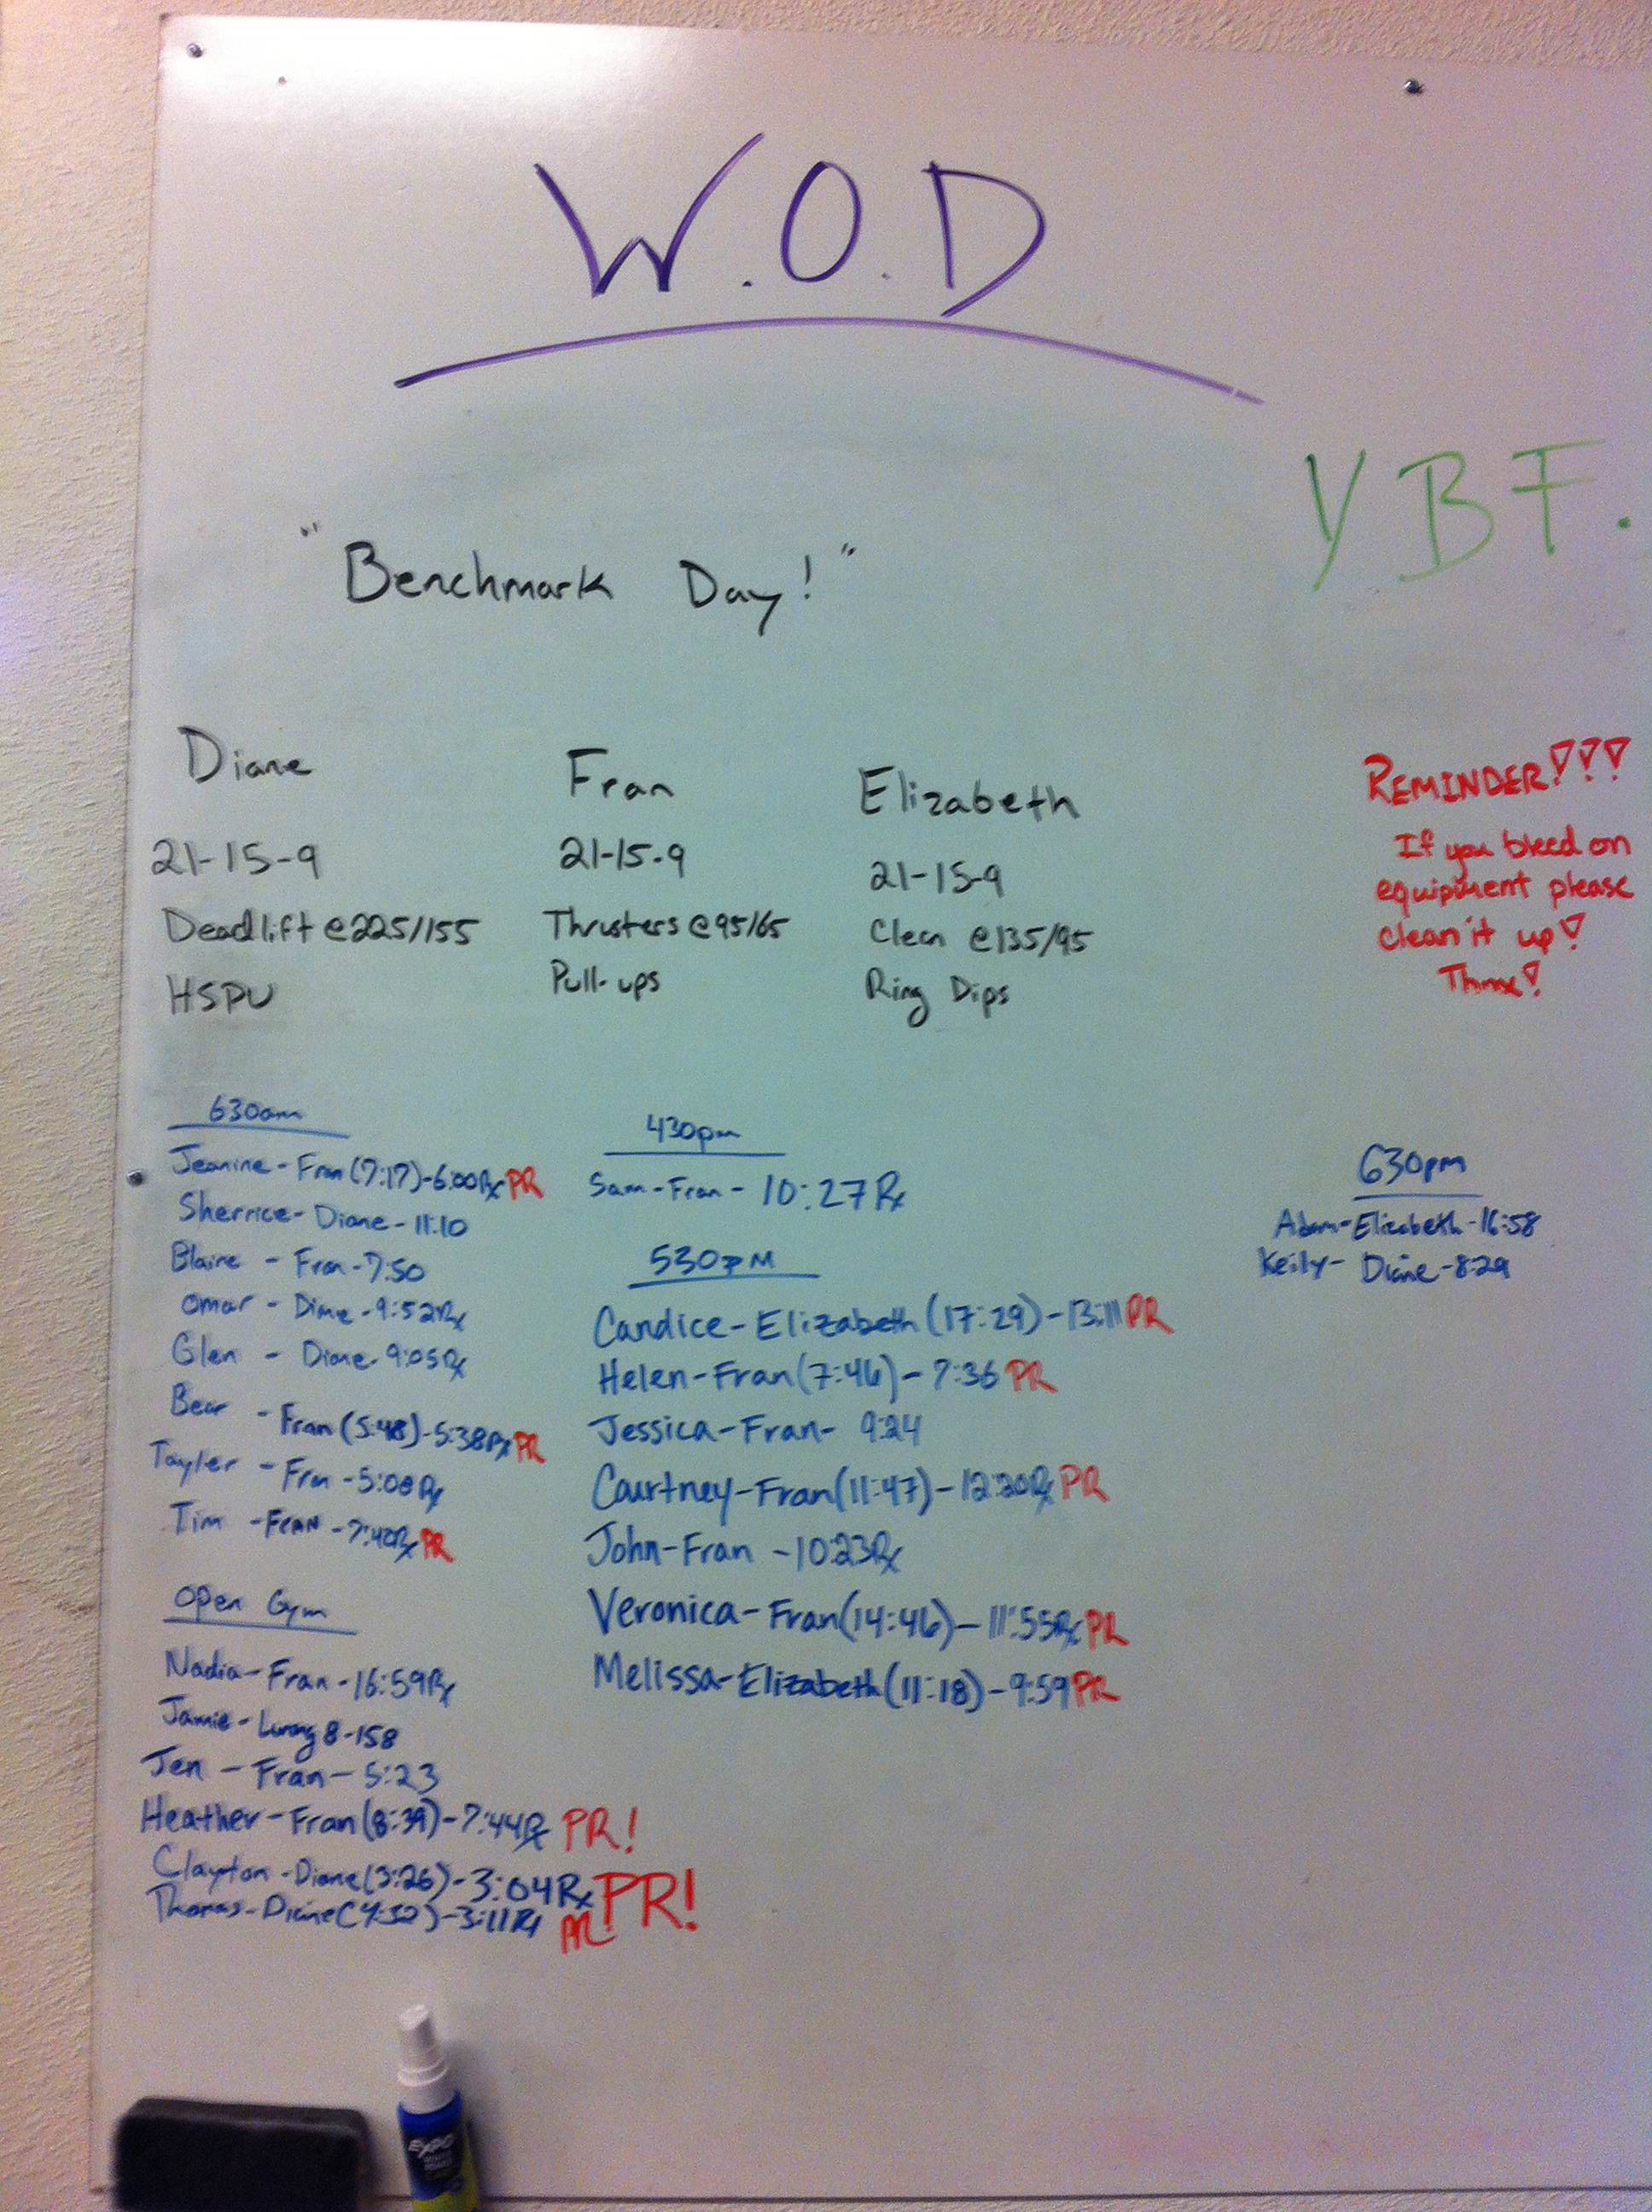 W.O.D
Y B F.
"Benchmark Day!"
Diane
21-15-9
Deadlift @ 225/155
HSPU
Fran
21-15-9
Thrusters @ 95/65
Pull-ups
Elizabeth
21-15-9
Clean @ 135/95
Ring Dips
REMINDER!!!
If you bleed on
equipment please
clean it up!
Thnx!
630am
Jeanine - Fran (7:17) - 6:00 Rx PR
Sherrice - Diane - 11:10
Blaine - Fran - 7:50
Omar - Diane - 9:52 Rx
Glen - Diane - 9:05 Rx
Bear - Fran (5:48) - 5:38 Rx PR
Tayler - Fran - 5:08 Rx
Tim - Fran - 7:40 Rx PR
Open Gym
Nadia - Fran - 16:59 Rx
Jamie - 8 - 158
Jen - Fran - 5:23
Heather - Fran (8:39) - 7:44 Rx PR!
Clayton - Diane (3:26) - 3:04 Rx PR!
Thomas - Diane (4:32) - 3:11 Rx PR
430pm
Sam - Fran - 10:27 Rx
530pm
Candice - Elizabeth (17:29) - 13:11 PR
Helen - Fran (7:46) - 7:36 PR
Jessica - Fran - 9:24
Courtney - Fran (11:47) - 12:20 Rx PR
John - Fran - 10:23 Rx
Veronica - Fran (14:46) - 11:55 Rx PR
Melissa - Elizabeth (11:18) - 9:59 PR
630pm
Adam - Elizabeth - 16:58
Keily - Diane - 8:29
EXPO